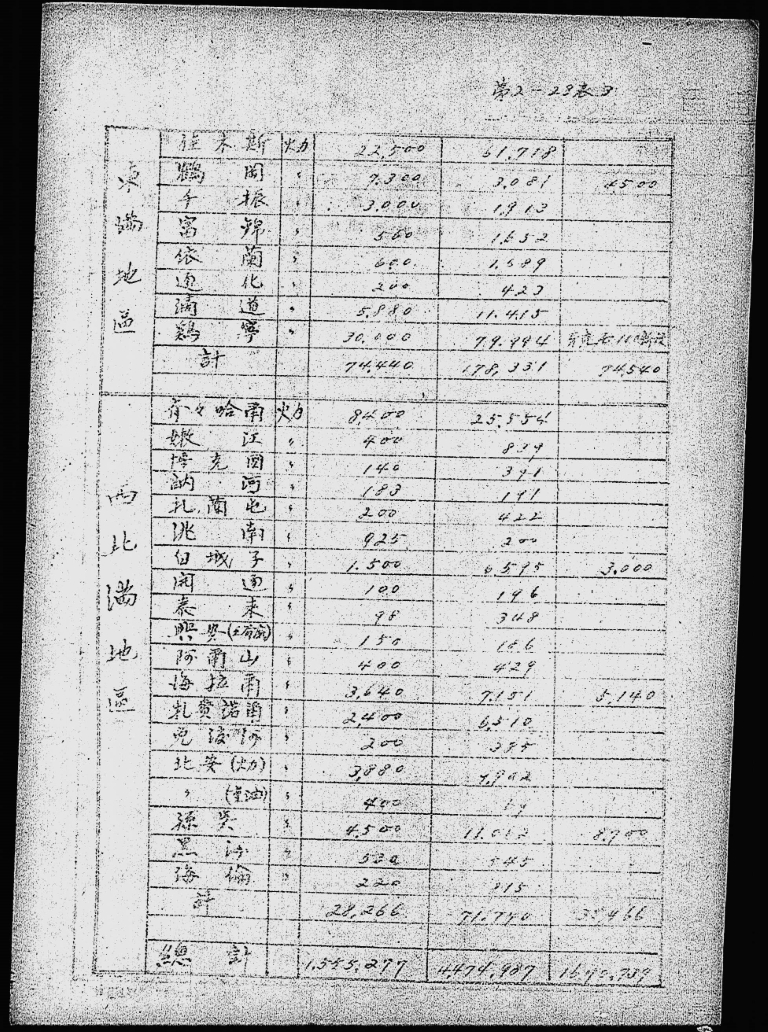 第2-23表 3
東満地區
佳木斯 火力 22,500 61,718
鶴岡 〃 7,300 3,081 4500
〃 3,000 1,913
富錦 〃 560 1,652
依蘭 〃 600 1,589
通化 〃 200 423
〃 5,880 11,415
鷄寧 〃 30,000 79,994
計 74,440 178,331 74540
西北満地區
斉々哈爾 火力 8,400 25,554
嫩江 〃 400 839
博克図 〃 140 391
訥河 〃 183 191
札蘭屯 〃 200 422
洮南 〃 925 200
白城子 〃 1,500 6,595 3,000
開通 〃 100 196
泰来 〃 98 348
興安 〃 150 166
阿爾山 〃 400 429
海拉爾 〃 3,640 7,151 5,140
札賚諾爾 〃 2,400 6,510
免渡河 〃 200 395
北安(火力) 〃 3,880 7,902
〃 (重油) 〃 400
孫呉 〃 4,500 11,012 8,700
黒河 〃 530 545
海倫 〃 220 315
計 28,266 71,740
總計 1,555,277 4474,987